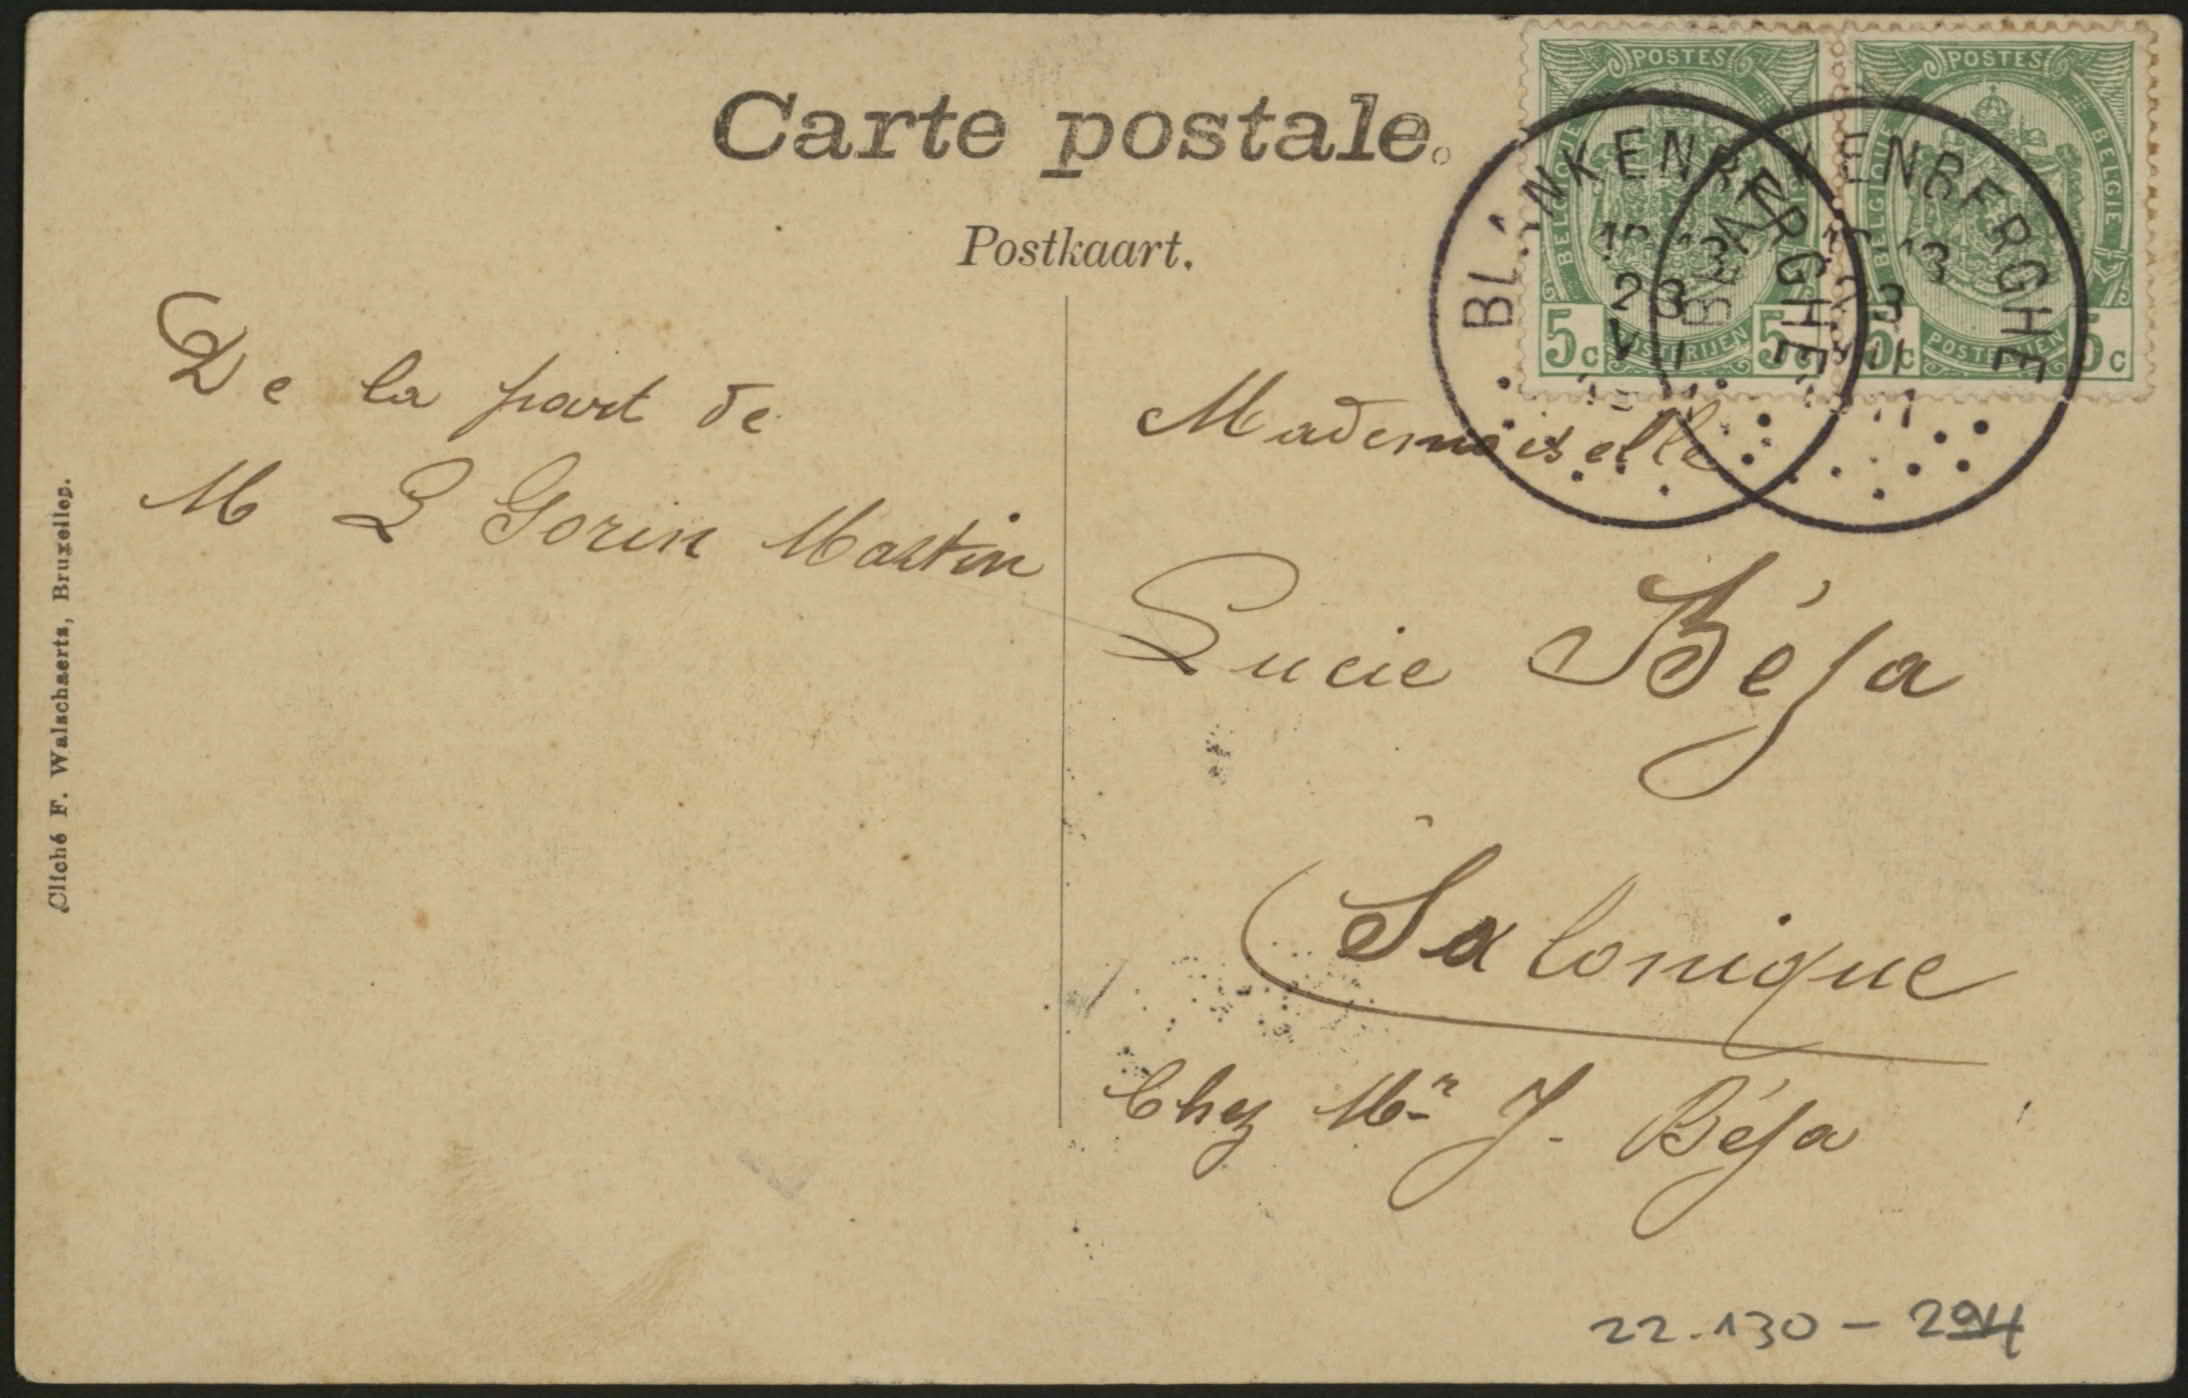 Carte postale.
Postkaart.
POSTES
BELGIQUE
5c POSTERIJEN 5c
POSTES
BELGIQUE BELGIE
5c POSTERIJEN 5c
BLANKENBERGHE
23
BLANKENBERGHE
13
23
De la part de
M L Gorin Martin
Mademoiselle
Lucie Béja
Salonique
Chez Mr J. Béja
Cliché F. Walschaerts, Bruxelles.
22.130-294